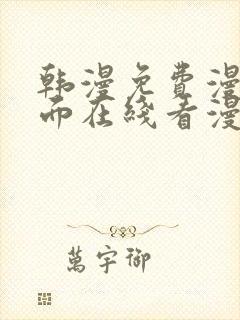 韩漫免费漫
而在线看漫
萬宇御